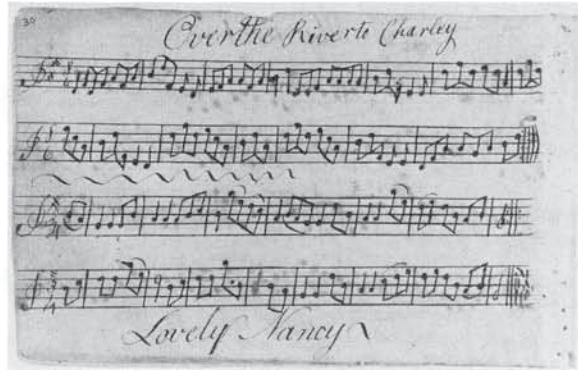 30
Over the River to Charley
Lovely Nancy